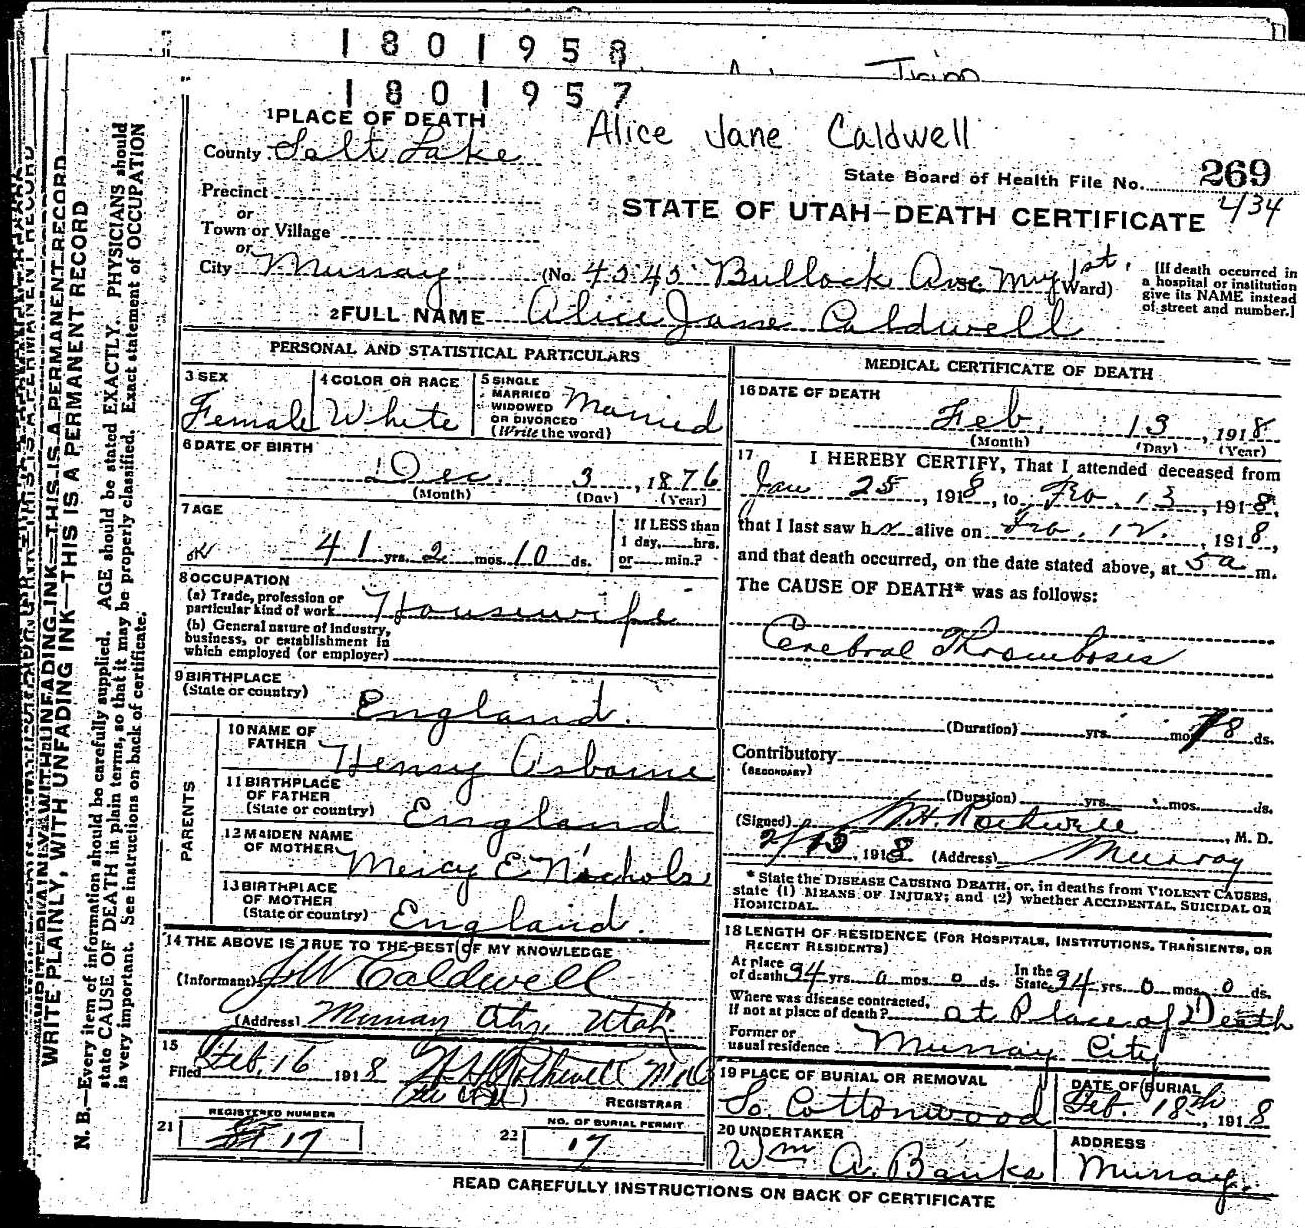 1801958
1801957
1 PLACE OF DEATH
Alice Jane Caldwell
County Salt Lake
State Board of Health File No. 269
434
Precinct
or
Town or Village
STATE OF UTAH—DEATH CERTIFICATE
or
City Murray (No. 4545 Bullock Ave Mry 1st. Ward)
[If death occurred in
a hospital or institution
give its NAME instead
of street and number.]
2 FULL NAME Alice Jane Caldwell
PERSONAL AND STATISTICAL PARTICULARS
3 SEX
Female
4 COLOR OR RACE
White
5 SINGLE
MARRIED
WIDOWED
OR DIVORCED
(Write the word)
Married
6 DATE OF BIRTH
Dec. 3, 1876
(Month) (Day) (Year)
7 AGE
41 yrs. 2 mos. 10 ds.
If LESS than
1 day, hrs.
or min.?
8 OCCUPATION
(a) Trade, profession or
particular kind of work Housewife
(b) General nature of industry,
business, or establishment in
which employed (or employer)
9 BIRTHPLACE
(State or country)
England.
PARENTS
10 NAME OF
FATHER Henry Osborne
11 BIRTHPLACE
OF FATHER
(State or country) England
12 MAIDEN NAME
OF MOTHER Mercy E. Nichols
13 BIRTHPLACE
OF MOTHER
(State or country) England.
14 THE ABOVE IS TRUE TO THE BEST OF MY KNOWLEDGE
(Informant) J W Caldwell
(Address) Murray City, Utah
15
Filed Feb. 16 1918
REGISTRAR
REGISTERED NUMBER
21 17
NO. OF BURIAL PERMIT
22 17
MEDICAL CERTIFICATE OF DEATH
16 DATE OF DEATH
Feb. 13, 1918
(Month) (Day) (Year)
17
I HEREBY CERTIFY, That I attended deceased from
Jan 25, 1918, to Feb. 13, 1918,
that I last saw her alive on Feb. 12, 1918,
and that death occurred, on the date stated above, at 5 a m.
The CAUSE OF DEATH* was as follows:
Cerebral Thrombosis
(Duration) yrs. mos. 18 ds.
Contributory
(SECONDARY)
(Duration) yrs. mos. ds.
(Signed) M.D.
2/15, 1918 (Address) Murray
* State the DISEASE CAUSING DEATH, or, in deaths from VIOLENT CAUSES,
state (1) MEANS OF INJURY; and (2) whether ACCIDENTAL, SUICIDAL OR
HOMICIDAL.
18 LENGTH OF RESIDENCE (FOR HOSPITALS, INSTITUTIONS, TRANSIENTS, OR
RECENT RESIDENTS)
At place
of death 34 yrs. 0 mos. 0 ds.
In the
State 34 yrs. 0 mos. 0 ds.
Where was disease contracted,
If not at place of death? at Place of Death
Former or
usual residence Murray City
19 PLACE OF BURIAL OR REMOVAL
So. Cottonwood
DATE OF BURIAL
Feb. 18th, 1918
20 UNDERTAKER
Wm A. Banks
ADDRESS
Murray.
READ CAREFULLY INSTRUCTIONS ON BACK OF CERTIFICATE
WRITE PLAINLY, WITH UNFADING INK—THIS IS A PERMANENT RECORD
N. B.—Every item of information should be carefully supplied. AGE should be stated EXACTLY. PHYSICIANS should
state CAUSE OF DEATH in plain terms, so that it may be properly classified. Exact statement of OCCUPATION
is very important. See instructions on back of certificate.